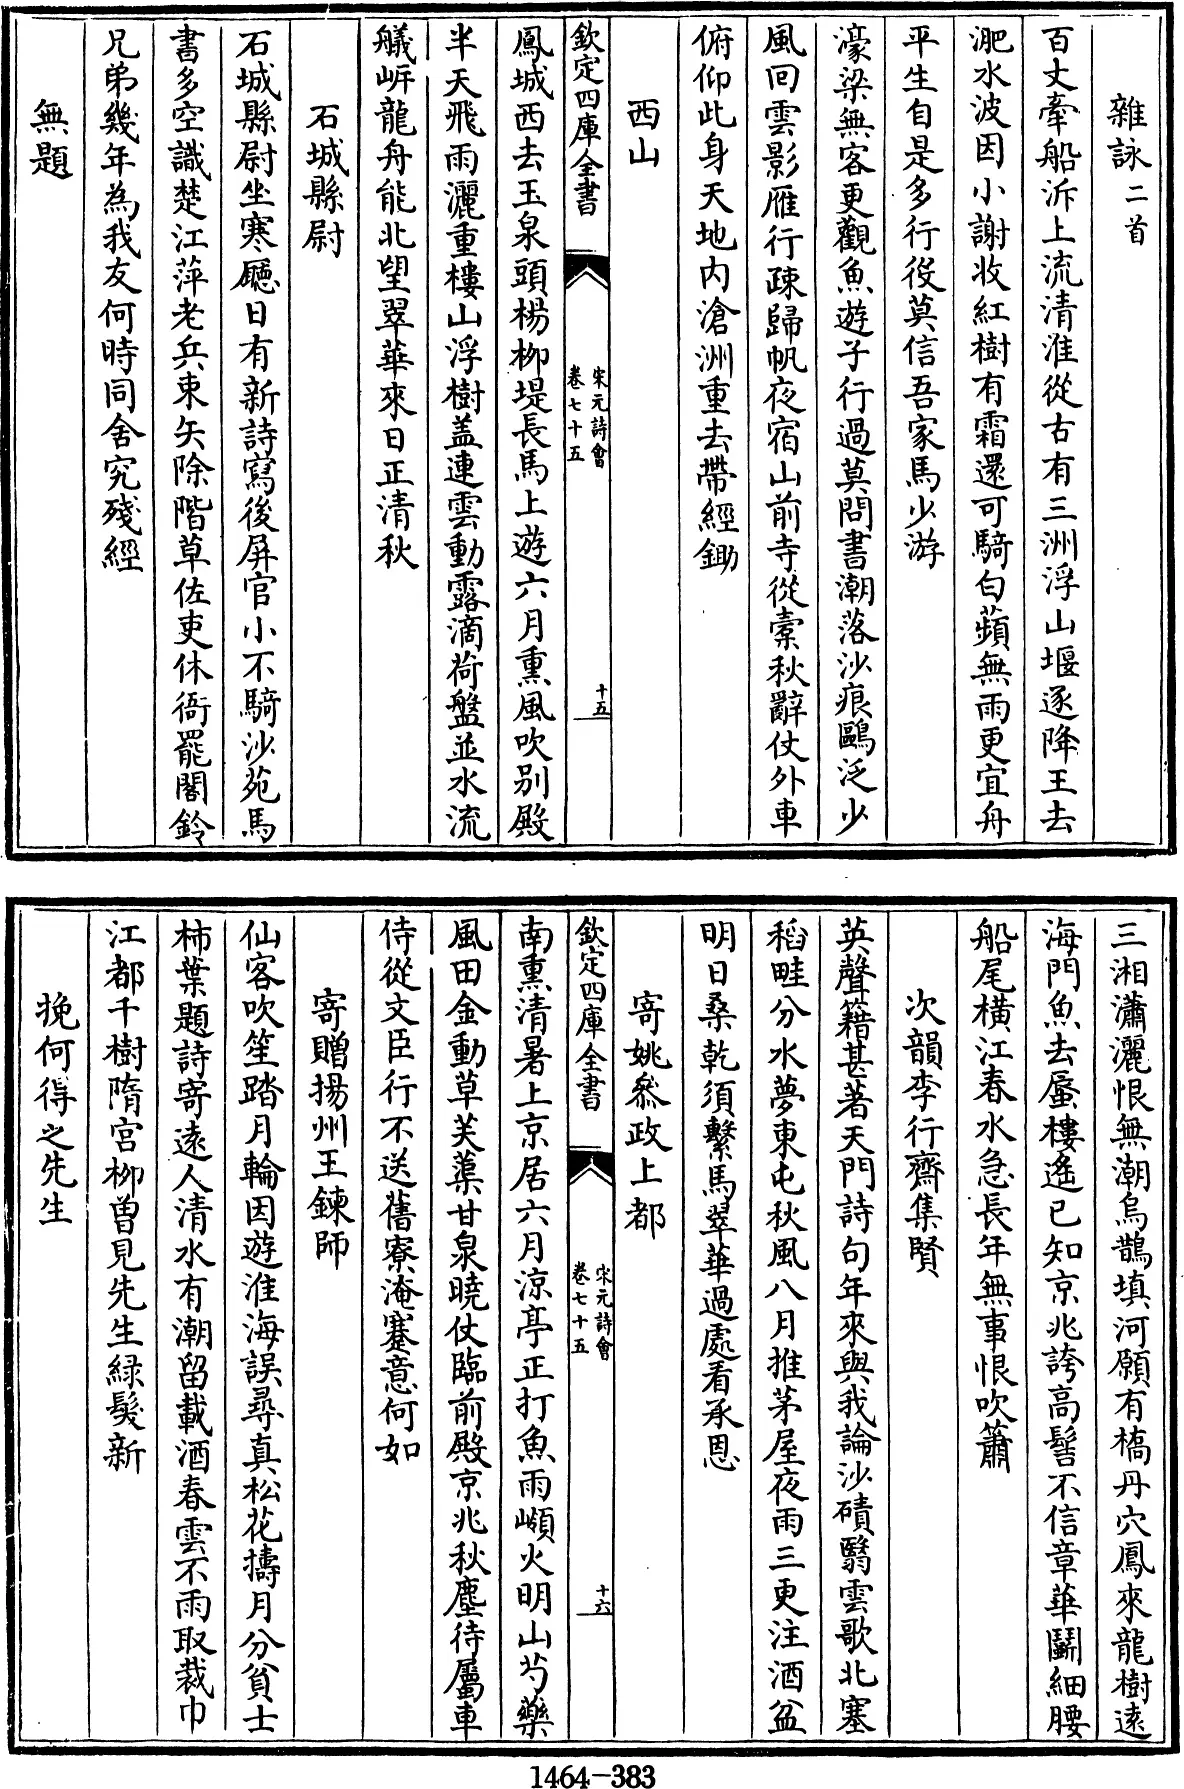 雜詠二首
百丈牽船泝上流清淮從古有三洲浮山堰逐降王去
淝水波因小謝收紅樹有霜還可騎白蘋無雨更宜舟
平生自是多行役莫信吾家馬少游
濠梁無客更觀魚遊子行過莫問書潮落沙痕鷗泛少
風回雲影雁行疎歸帆夜宿山前寺從槖秋辭仗外車
俯仰此身天地內滄洲重去帶經鋤
西山
欽定四庫全書
宋元詩會
卷七十五
十五
鳳城西去玉泉頭楊柳堤長馬上遊六月熏風吹別殿
半天飛雨灑重樓山浮樹蓋連雲動露滴荷盤並水流
艤岍龍舟能北望翠華來日正清秋
石城縣尉
石城縣尉坐寒廳日有新詩寫後屏官小不騎沙苑馬
書多空識楚江萍老兵束矢除階草佐吏休衙罷閣鈴
兄弟幾年為我友何時同舍究殘經
無題
三湘瀟灑恨無潮烏鵲填河願有橋丹穴鳳來龍樹遠
海門魚去蜃樓遙已知京兆誇高髻不信章華鬭細腰
船尾橫江春水急長年無事恨吹簫
次韻李行齋集賢
英聲籍甚著天門詩句年來與我論沙磧翳雲歌北塞
稻畦分水夢東屯秋風八月推茅屋夜雨三更注酒盆
明日桑乾須繫馬翠華過處看承恩
寄姚叅政上都
欽定四庫全書
宋元詩會
卷七十五
十六
南熏清暑上京居六月涼亭正打魚雨巘火明山芍藥
風田金動草芙蕖甘泉曉仗臨前殿京兆秋塵待屬車
侍從文臣行不送舊寮淹蹇意何如
寄贈揚州王鍊師
仙客吹笙踏月輪因遊淮海誤尋真松花擣月分貧士
柿葉題詩寄遠人清水有潮留載酒春雲不雨取裁巾
江都千樹隋宮柳曾見先生緑髮新
挽何得之先生
1464-383